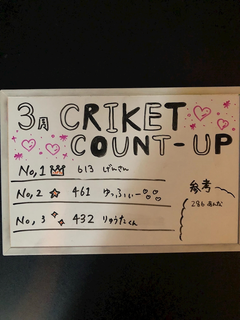 3月 CRIKET
COUNT-UP
No,1 613 げんさん
No,2 461 ゆっふぃー
No,3 432 りゅうたくん
参考
286